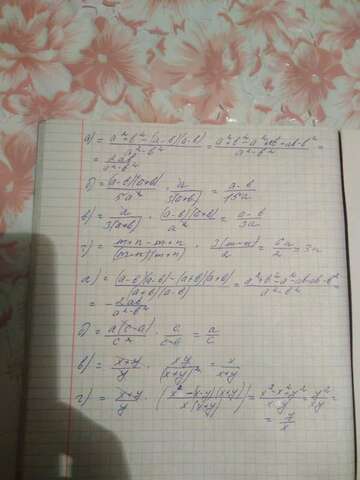 а) = (a²+b²-(a-b)(a-b))/(a²-b²) = (a²+b²-a²+ab+ab-b²)/(a²-b²) =
= 2ab/(a²-b²)
б) = (a-b)(a+b)/5a² · a/3(a+b) = (a-b)/15a
в) = a/3(a+b) · (a-b)(a+b)/a² = (a-b)/3a
= (m+n-m+n)/((m+n)(m+n)) · 3(m-n)/2 = 6n/2 = 3n
а) = ((a-b)(a-b)-(a+b)(a+b))/((a+b)(a-b)) =
= -2ab/(a²-b²)
б) = a(c-a)/c² · c/(c-a) = a/c
в) = (x+y)/y · xy/(x+y)² = x/(x+y)
г) = (x+y)/y · ((x²-(x-y)(x+y))/x(x+y)) = (x²-x²+y²)/xy = y²/xy =
= y/x